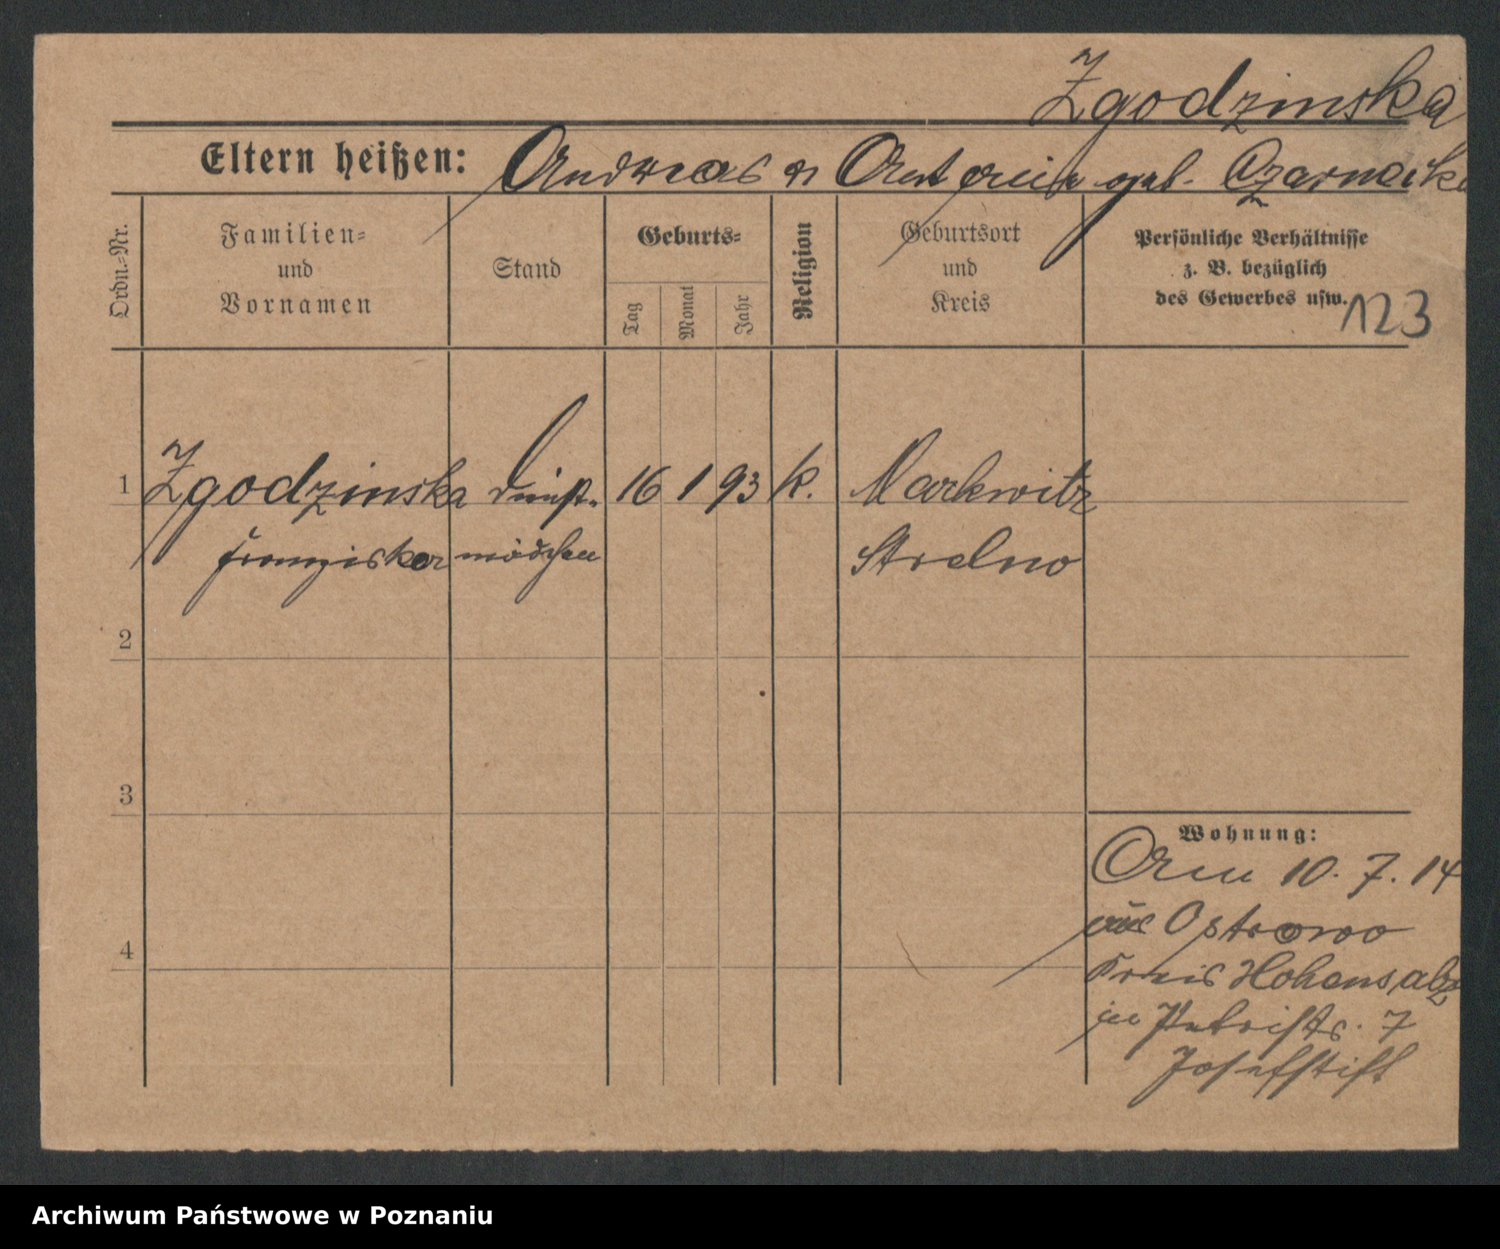 Zgodzinska
Eltern heißen: Andreas u Antonie geb. Czarnecki
Ordn.-Nr.
Familien-
und
Vornamen
Stand
Geburts-
Tag
Monat
Jahr
Religion
Geburtsort
und
Kreis
Persönliche Verhältnisse
z. B. bezüglich
des Gewerbes usw.
123
1 Zgodzinska Dienst- 16 1 93 k. Markwitz
Franziska mädchen Strelno
2
3
4
Wohnung:
Am 10. 7. 14
aus Ostrowo
Kreis Hohensalza
in Petristr. 7
Josefstift
Archiwum Państwowe w Poznaniu